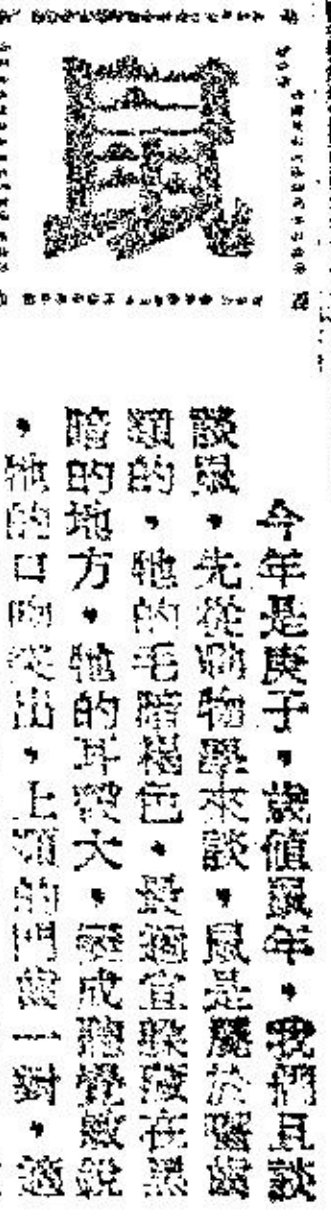 鼠
今年是庚子,歲值鼠年,我們且談
談鼠,先從動物學來談,鼠是屬於齧齒
類的,牠的毛暗褐色,最適宜躲藏在黑
暗的地方,牠的耳殼大,成聽覺敏銳
,牠的口吻突出,上顎的門齒一對,